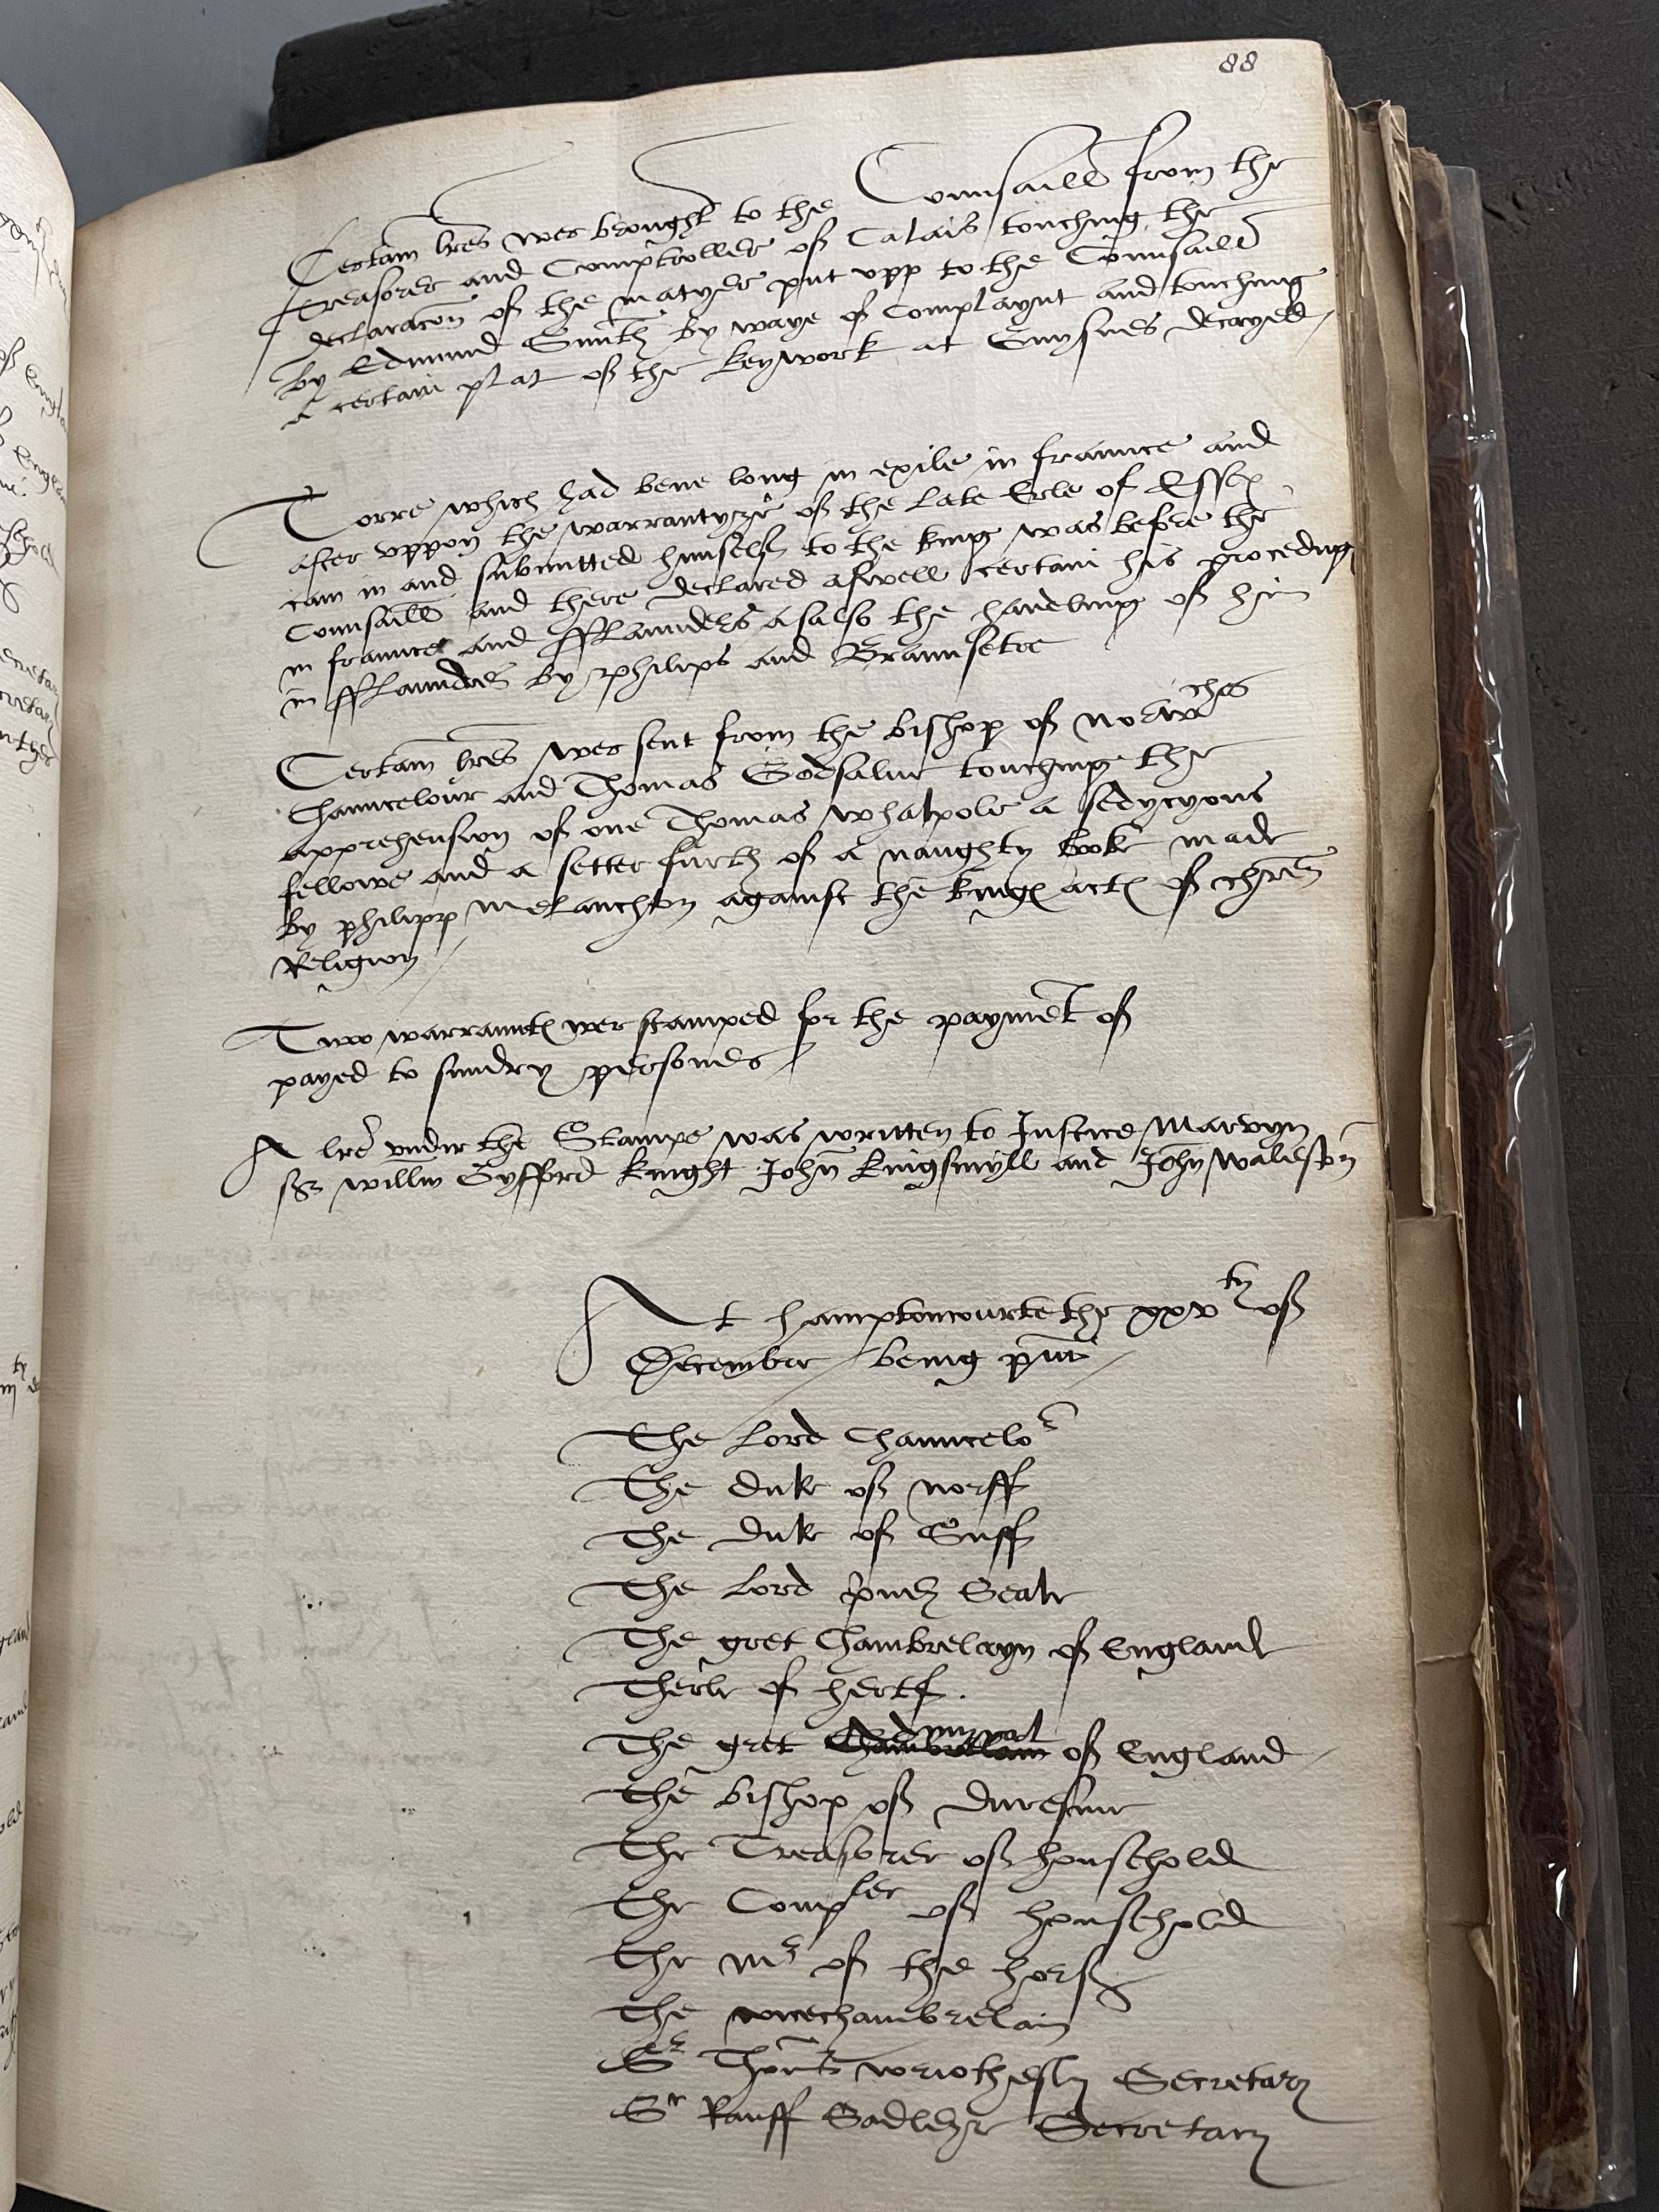 88
Certain lres wer brought to the Counsaill from the
Treasorer and Comptroller of Calais touching the
declaracon of the matyer put upp to the Counsaill
by Edmund Smith by waye of Complaynt and touching
a certain plat of the keywork at Guysnes decayed
Torre which had bene long in exile in fraunce and
after uppon the warrantyze of the late Erle of Essex
cam in and submitted himself to the king was before the
Counsaill and there declared aswell certain his proceding
in fraunce and fflaunders as also the handeling of him
in fflaundres by philips and Braunsetre
Certain lres wer sent from the bishop of norwiches
Chauncelour and Thomas Godsalue touching the
apprehension of one Thomas whalpole a sedycyous
fellowe and a setter furth of a naughty boke made
by philipp Melanchton against the kings acts of chren
Religion
Two warraunts wer stamped for the payment of
payed to sundry persones
A lre under the Stampe was written to Justice Marvyn
Sr willm Gyfford knight John kingsmyll and John waleston
At hamptoncourte the xxvty of
December being pnt
The Lord Chauncelor
The duke of norff
The duke of Suff
The Lord privey Seale
The gret Chambrelayn of England
Therle of hertf.
The gret Chambrelain Admyral of England
The bishop of duresme
The Treasorer of houshold
The Compler of houshold
The mr of the horse
The vicechambrelain
Sr Thoms wriothesley Secretary
Sr Rauff Sadleyr Secretary